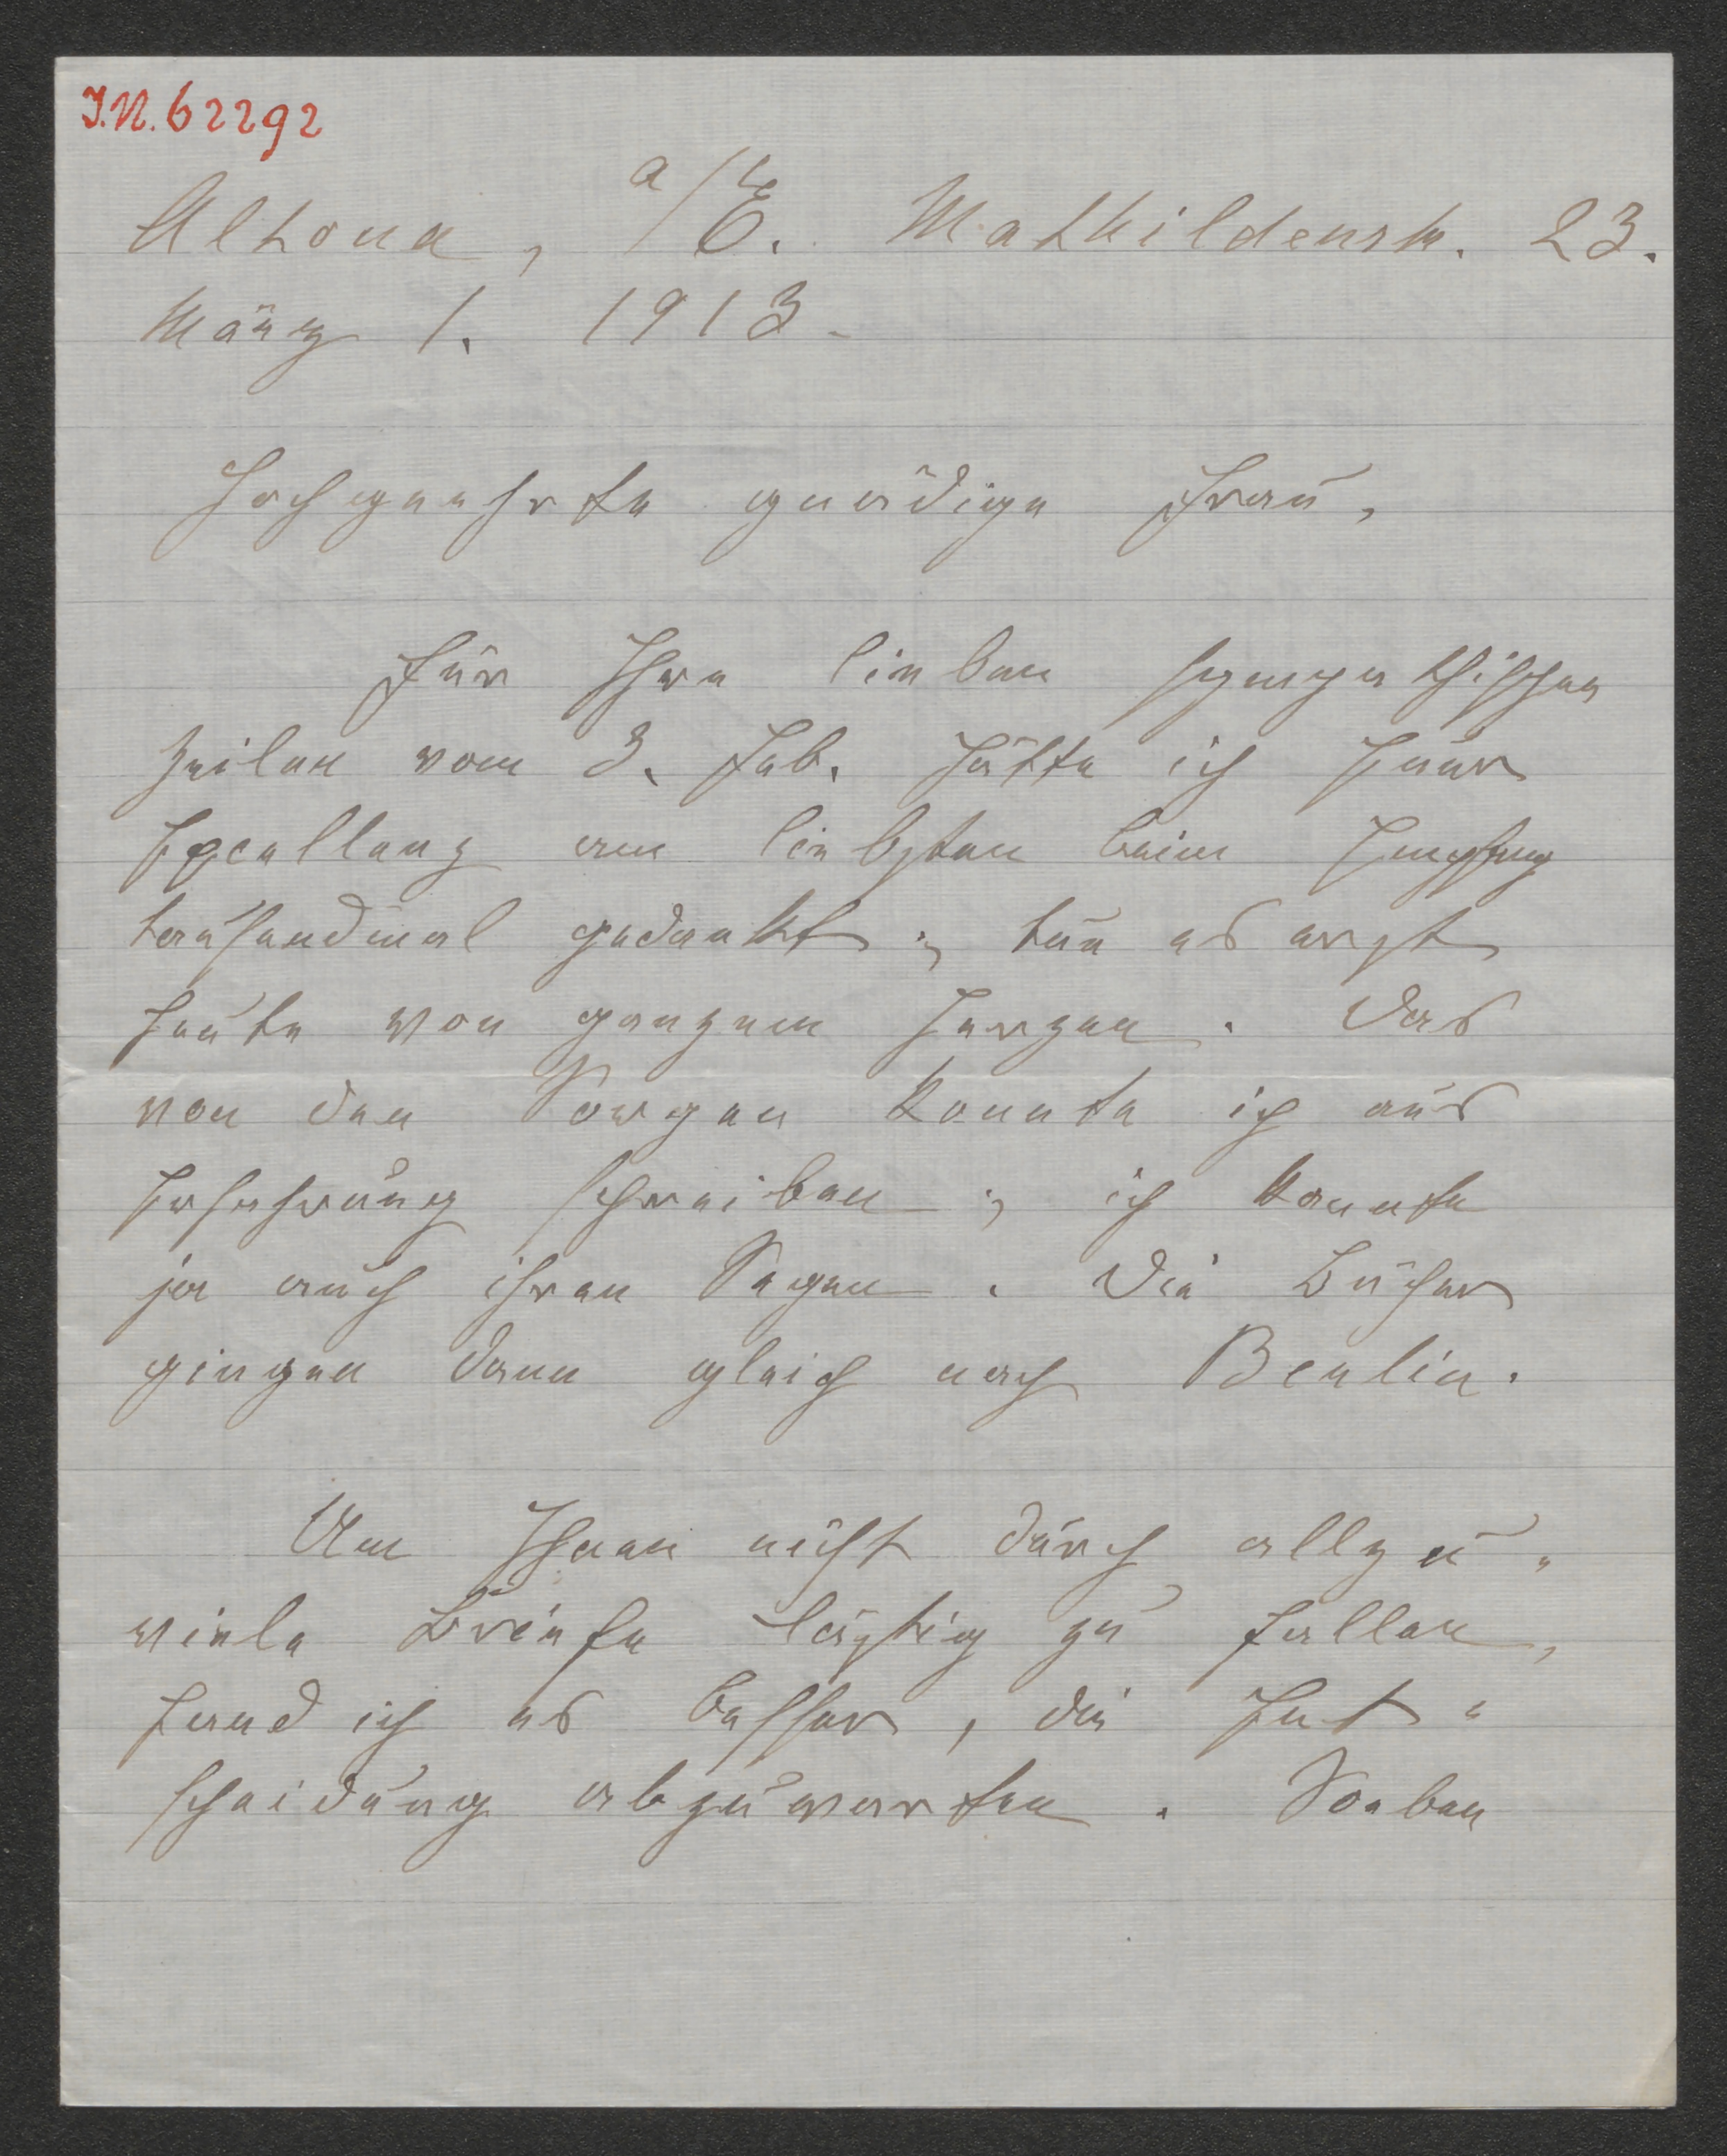 I.N. 62292
Altona, a/E. Mathildenstr. 23.
März 1. 1913.
Hochgeehrte gnädige Frau,
Für Ihre lieben sympathischen
Zeilen vom 3. Feb. hätte ich Euer
Excellenz am liebsten beim Empfang
tausendmal gedankt; tue es erst
heute von ganzem Herzen. Das
von den Sorgen konnte ich aus
Erfahrung schreiben; ich kannte
ja auch ihren Segen. Die Bücher
gingen dann gleich nach Berlin.
Um Ihnen nicht durch allzu-
viele Briefe lästig zu fallen,
fand ich es besser, die Ent-
scheidung abzuwarten. Soeben